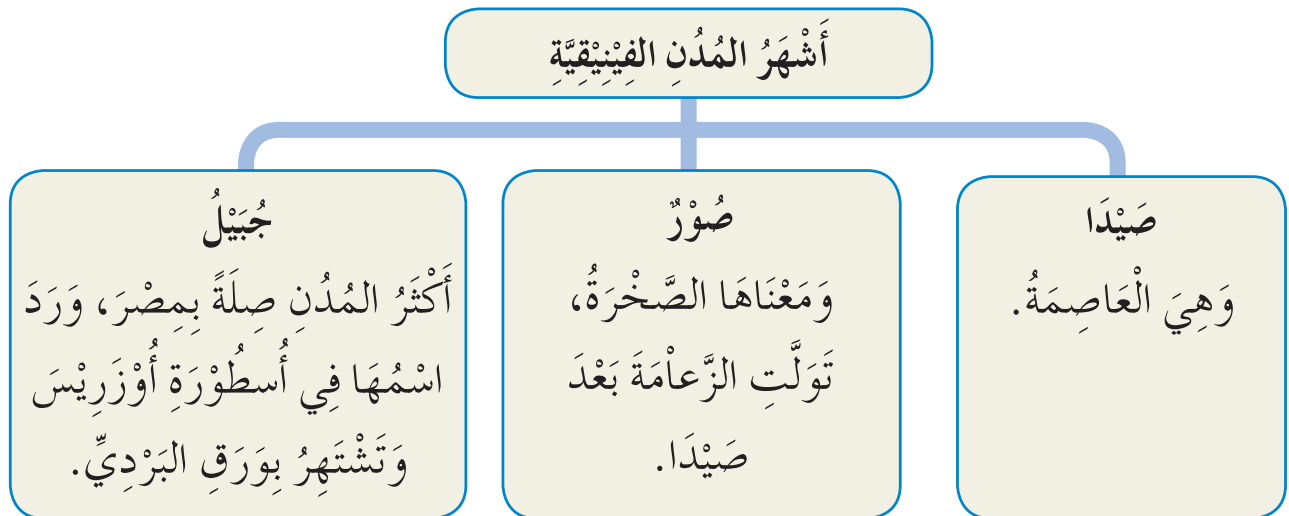 أَشْهَرُ المُدُنِ الفِيْنِيْقِيَّةِ
صَيْدَا
وَهِيَ الْعَاصِمَةُ.
صُوْرٌ
وَمَعْنَاهَا الصَّخْرَةُ،
تَوَلَّتِ الزَّعاْمَةَ بَعْدَ
صَيْدَا.
جُبَيْلُ
أَكْثَرُ المُدُنِ صِلَةً بِمِصْرَ، وَرَدَ
اسْمُهَا فِي أُسطُوْرَةِ أُوْزَرِيْسَ
وَتَشْتَهِرُ بِوَرَقِ البَرْدِيِّ.